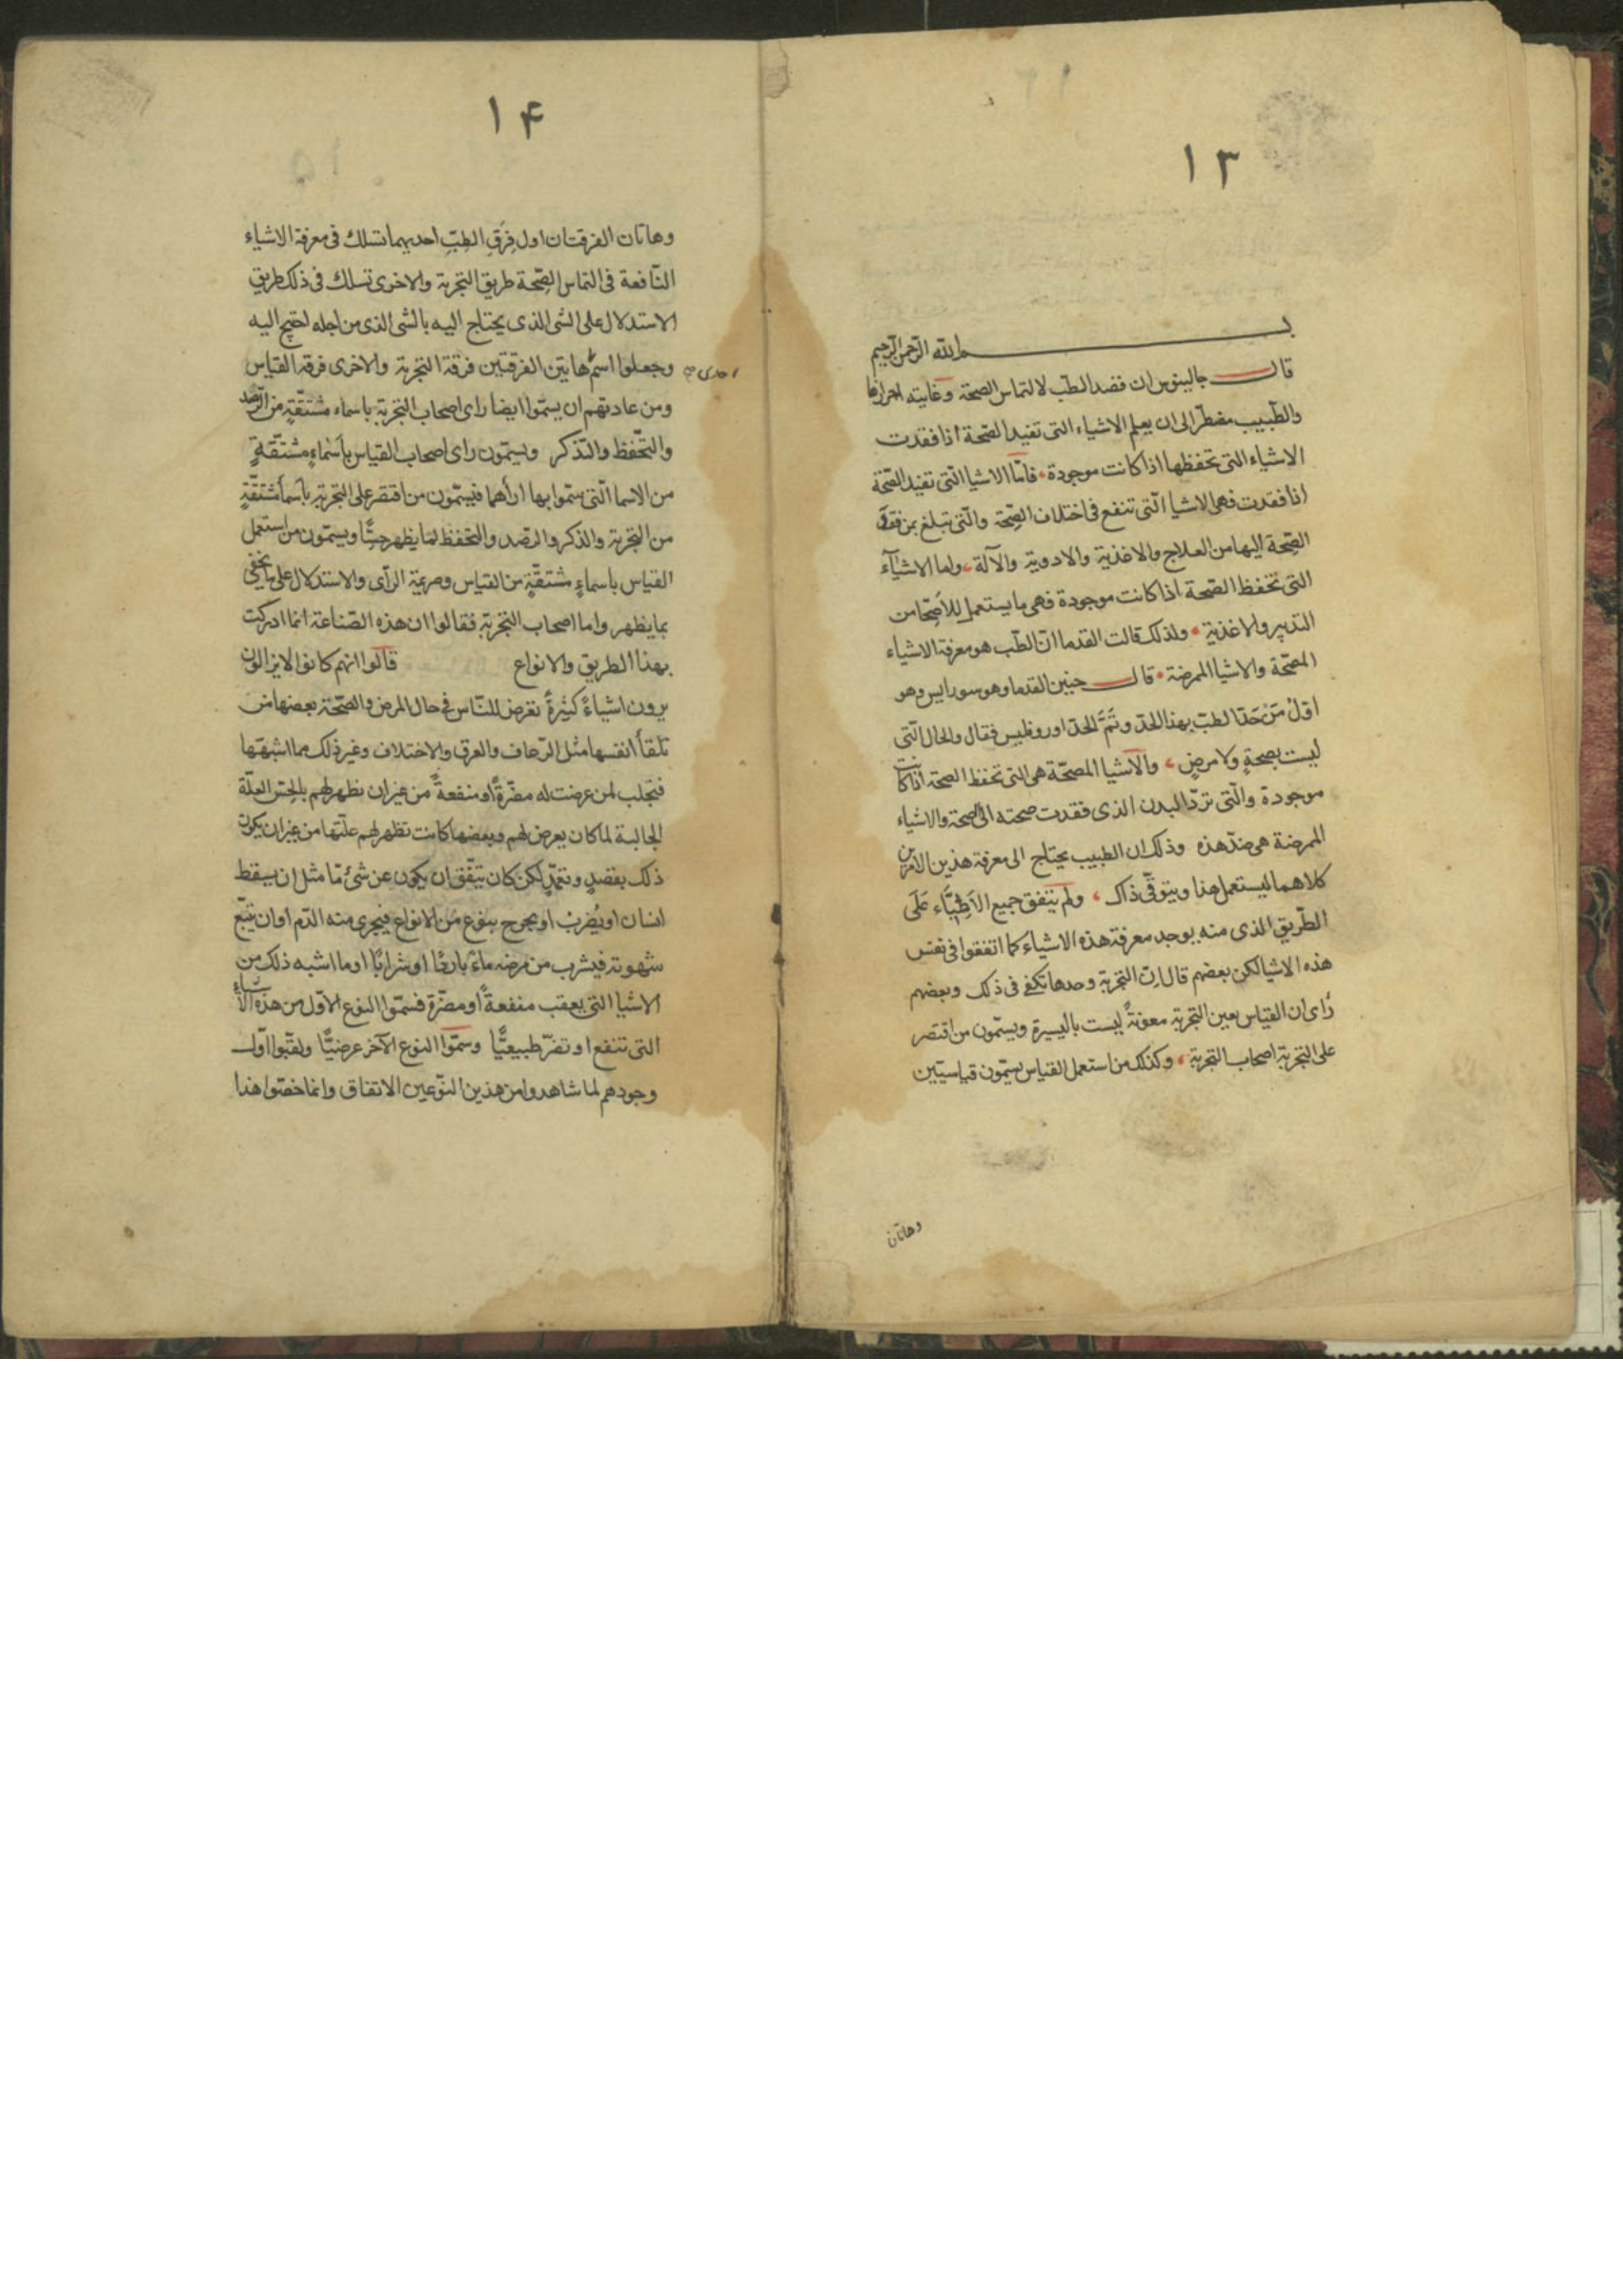 ١٣
بسم الله الرحمن الرحيم
قال جالينوس ان قصد الطب لالتماس الصحة وغايته احرازها
والطّبيب مضطرّ الى ان يعلم الاشياء التى تفيد الصّحة اذا فقدت
الاشياء التى تحفظها اذا كانت موجودة فامّا الاشيا الّتى تفيد الصّحة
اذا فقدت فهى الاشيا الّتى تنفع فى اختلاف الصّحة والّتى تبلغ بمن فقد
الصّحة اليها من العلاج والاغذية والادوية والآلة، واما الاشيآء
التى تحفظ الصّحة اذا كانت موجودة فهى ما يستعمل للأصحّا من
التدبير والاغذية ولذلك قالت القدما انّ الطّب هو معرفة الاشياء
المصحّة والاشيا الممرضة قال حنين القدما وهو سورايس وهو
اوّل مَنْ حَدّ الطبّ بهذا الحدّ وتَمَّ الحدّ اوروفليس فقال والحال الّتى
ليست بصحةٍ ولا مرضٍ، والاشيا المصحّة هى التى تحفظ الصحة اذا كانت
موجودة والّتى تردّ البدن الذى فقدت صحته الى الصحة والاشياء
الممرضة هى ضدّ هذه وذلك ان الطبيب يحتاج الى معرفة هذين الامرين
كلاهما ليستعمل هذا ويتوقّى ذاك، ولم يتفق جميع الاَطِبَّاء عَلَى
الطّريق الذى منه يوجد معرفة هذه الاشياء كما اتفقوا فى نفس
هذه الاشيا لكن بعضهم قال انّ التجربة وحدها تكفى فى ذلك وبعضهم
رأى ان القياس يعين التجربة معونةً ليست باليسيرة ويسمّون من اقتصر
على التجربة اصحاب التجربة، وكذلك من استعمل القياس يسمّون قياسيّين
وهاتان
١۴
وهاتان الفرقتان اول فِرَقِ الطِبِّ احديهما تسلك فى معرفة الاشياء
النّافعة فى التماس الصّحة طريق التجربة والاخرى تسلك فى ذلك طريق
الاستدلال على الشى الذى يحتاج اليه بالشى الذى من اجله احتيج اليه
وجعلوا اسم هاتين الفرقتين فرقة التجربة والاخرى فرقة القياس
احدى صح
ومن عادتهم ان يسمّوا ايضا راى اصحاب التجربة باسماء مشتقّةٍ من الرّصد
والتّحفظ والتّذكر ويسمّون راى اصحاب القياس بأسْماءٍ مشتقّةٍ
من الاسما الّتى سمّوا بها ارأهما فيسمّون من اقتصر على التجربة باسما مشتقّةٍ
من التجربة والذكر والرّصد والتحفظ لما يظهر حسًّا ويسمّون من استعمل
القياس باسماءٍ مشتقّةٍ من القياس وصريمة الرأى والاستدلال على ما يخفى
بما يظهر واما اصحاب التجربة فقالوا ان هذه الصّناعة انما ادركت
بهذا الطريق والانواع قالوا انهم كانوا لا يزالون
يرون اشياءً كثيرةً تعرض للنّاس فى حال المرض والصّحّة بعضها من
تلقأ انفسها مثل الرّعاف والعرق والاختلاف وغير ذلك مما اشبهها
فتجلب لمن عرضت له مضّرةً او منفعةً من غير ان تظهر لهم بالحِسّ العلّة
الجالبة لما كان يعرض لهم وبعضها كانت تظهر لهم علّتها من غير ان يكون
ذلك بقصدٍ وتعمّدٍ لكن كان يتّفق ان يكون عن شئ مّا مثل ان يسقط
انسان او يُضرَبُ او يجرح بنوع من الانواع فيجرى منه الدّم او ان يتبّع
شهوته فيشرب من مرضه ماءً باردًا او شرابًا او ما اشبه ذلك من
الاشيا التى يعقب منفعةً او مضّرة فسمّوا النوع الاوّل من هذه الأشياء
التى تنفع او تضرّ طبيعيًّا وسمّوا النوع الآخر عرضيًّا ولقّبوا اوّل
وجودهم لما شاهدوا من هذين النّوعين الاتفاق وانما خصّوا هذا